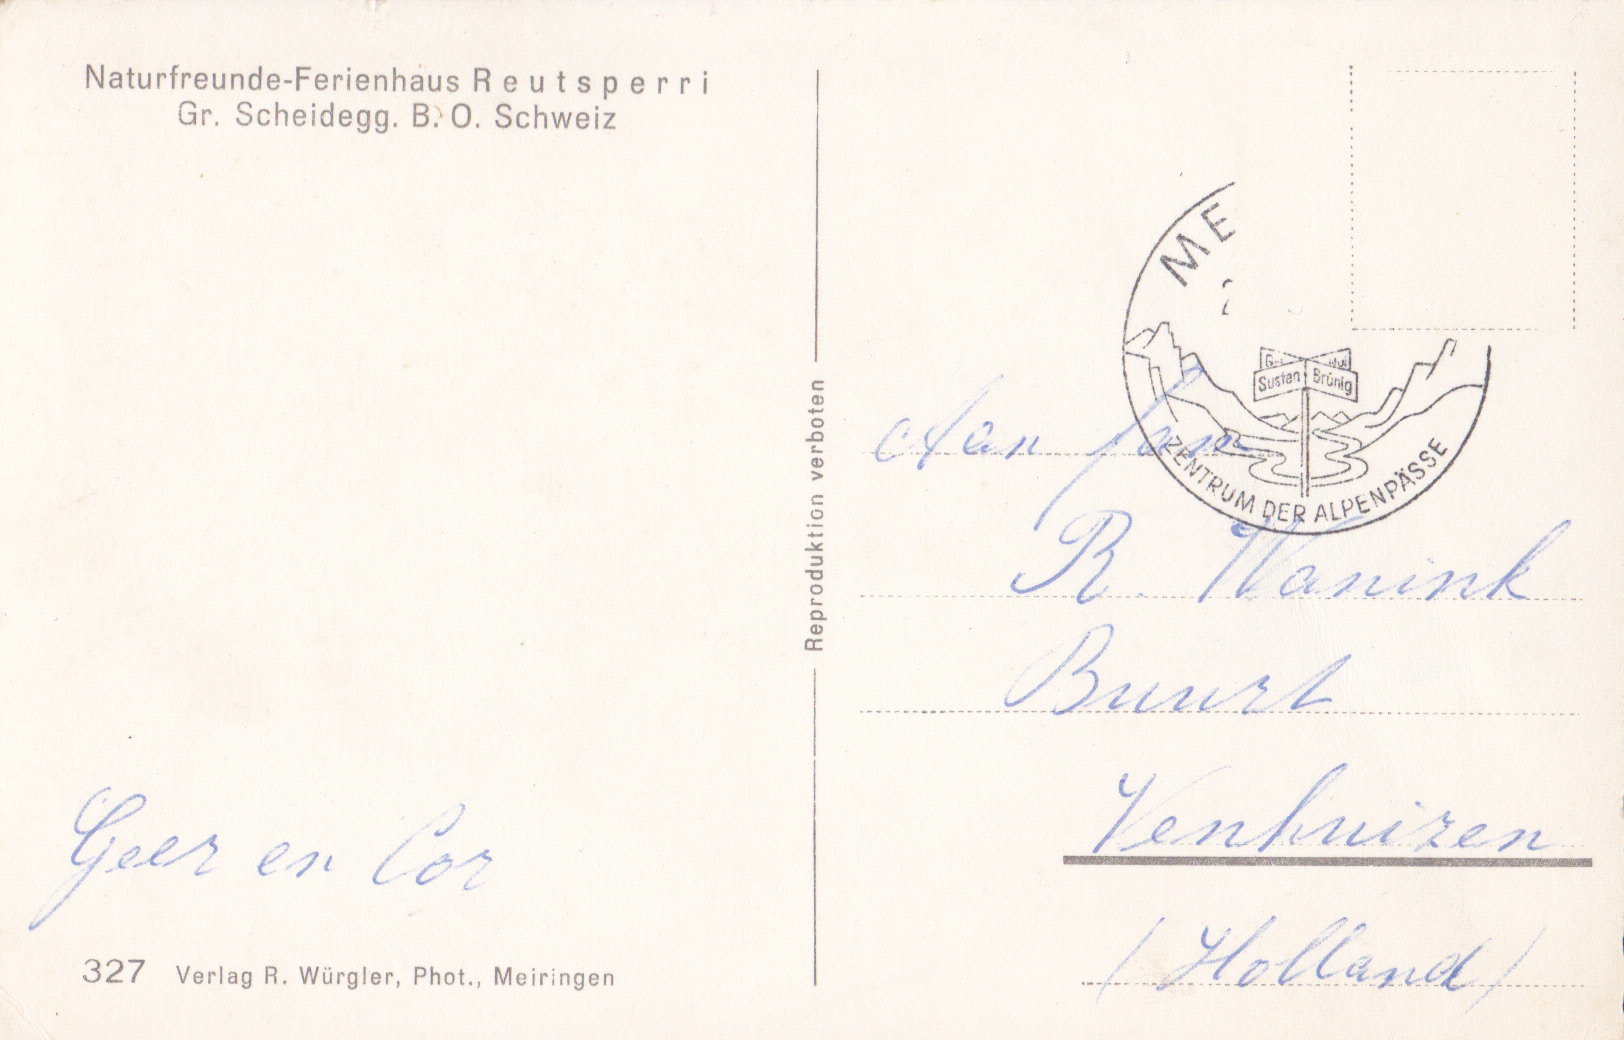 Naturfreunde-Ferienhaus Reutsperri
Gr. Scheidegg. B. O. Schweiz
Reproduktion verboten
ME
Susten Brünig
ZENTRUM DER ALPENPÄSSE
Aan fam
R. Wanink
Buurt
Venhuizen
(Holland)
Geer en Cor
327 Verlag R. Würgler, Phot., Meiringen